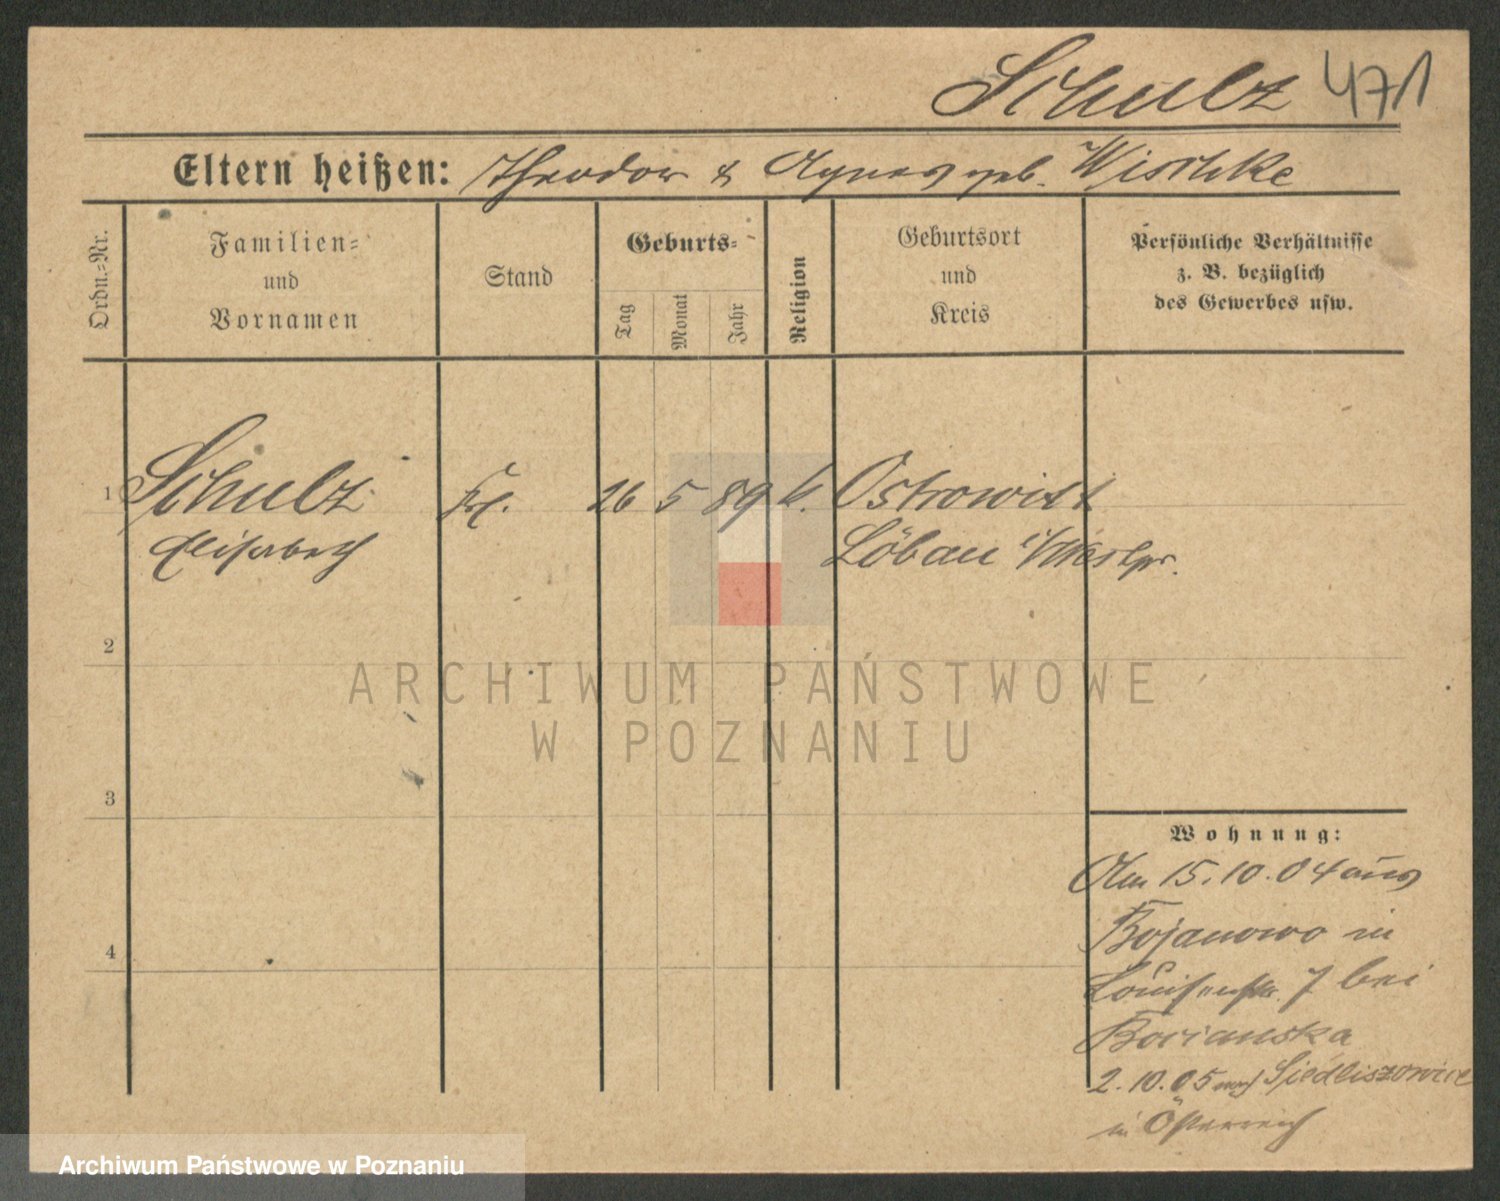 Schulz 471
Eltern heißen: Theodor & Agnes geb. Wischke
Ordn.-Nr.
Familien-
und
Vornamen
Stand
Geburts-
Tag
Monat
Jahr
Religion
Geburtsort
und
Kreis
Persönliche Verhältnisse
z. B. bezüglich
des Gewerbes usw.
1 Schulz Frl. 26 5 89 k. Ostrowitt
Elisabeth Löbau i/Westpr.
2
ARCHIWUM PAŃSTWOWE
W POZNANIU
3
Wohnung:
Am 15.10.04 aus
Bojanowo in
Louisenstr. 7 bei
Bocianska
4
2.10.05 nach Siedliszowice
in Österreich
Archiwum Państwowe w Poznaniu